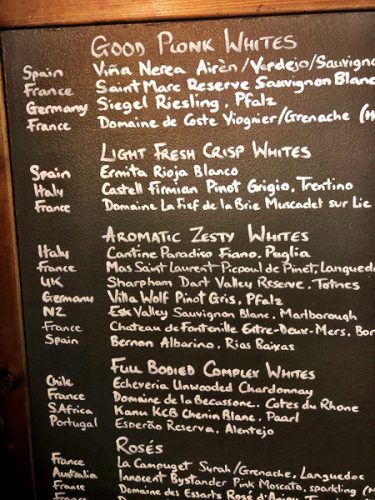 GOOD PLONK WHITES
Spain Viña Nerea Airèn/Verdejo/Sauvigno
France Saint Marc Reserve Sauvignon Blanc
Germany Siegel Riesling, Pfalz
France Domaine de Coste Viognier/Grenache
LIGHT FRESH CRISP WHITES
Spain Ermita Rioja Blanco
Italy Castell Firmian Pinot Grigio, Trentino
France Domaine La Fief de la Brie Muscadet sur Lie
AROMATIC ZESTY WHITES
Italy Cantine Paradiso Fiano, Puglia
France Mas Saint Laurent Picpoul de Pinet, Languedo
UK Sharpham Dart Valley Reserve, Totnes
Germany Villa Wolf Pinot Gris, Pfalz
NZ Esk Valley Sauvignon Blanc, Marlborough
France Chateau de Fontenille Entre-Deux-Mers, Bor
Spain Bernon Albarino, Rias Baixas
FULL BODIED COMPLEX WHITES
Chile Echeveria Unwooded Chardonnay
France Domaine de la Becassonne, Cotes du Rhone
S.Africa Kanu KCB Chenin Blanc, Paarl
Portugal Esperão Reserva, Alentejo
ROSÉS
France La Campuget Syrah/Grenache, Languedoc
Australia Innocent Bystander Pink Moscato, sparkling
France Domaine des Essarts Rosé d'Anjou